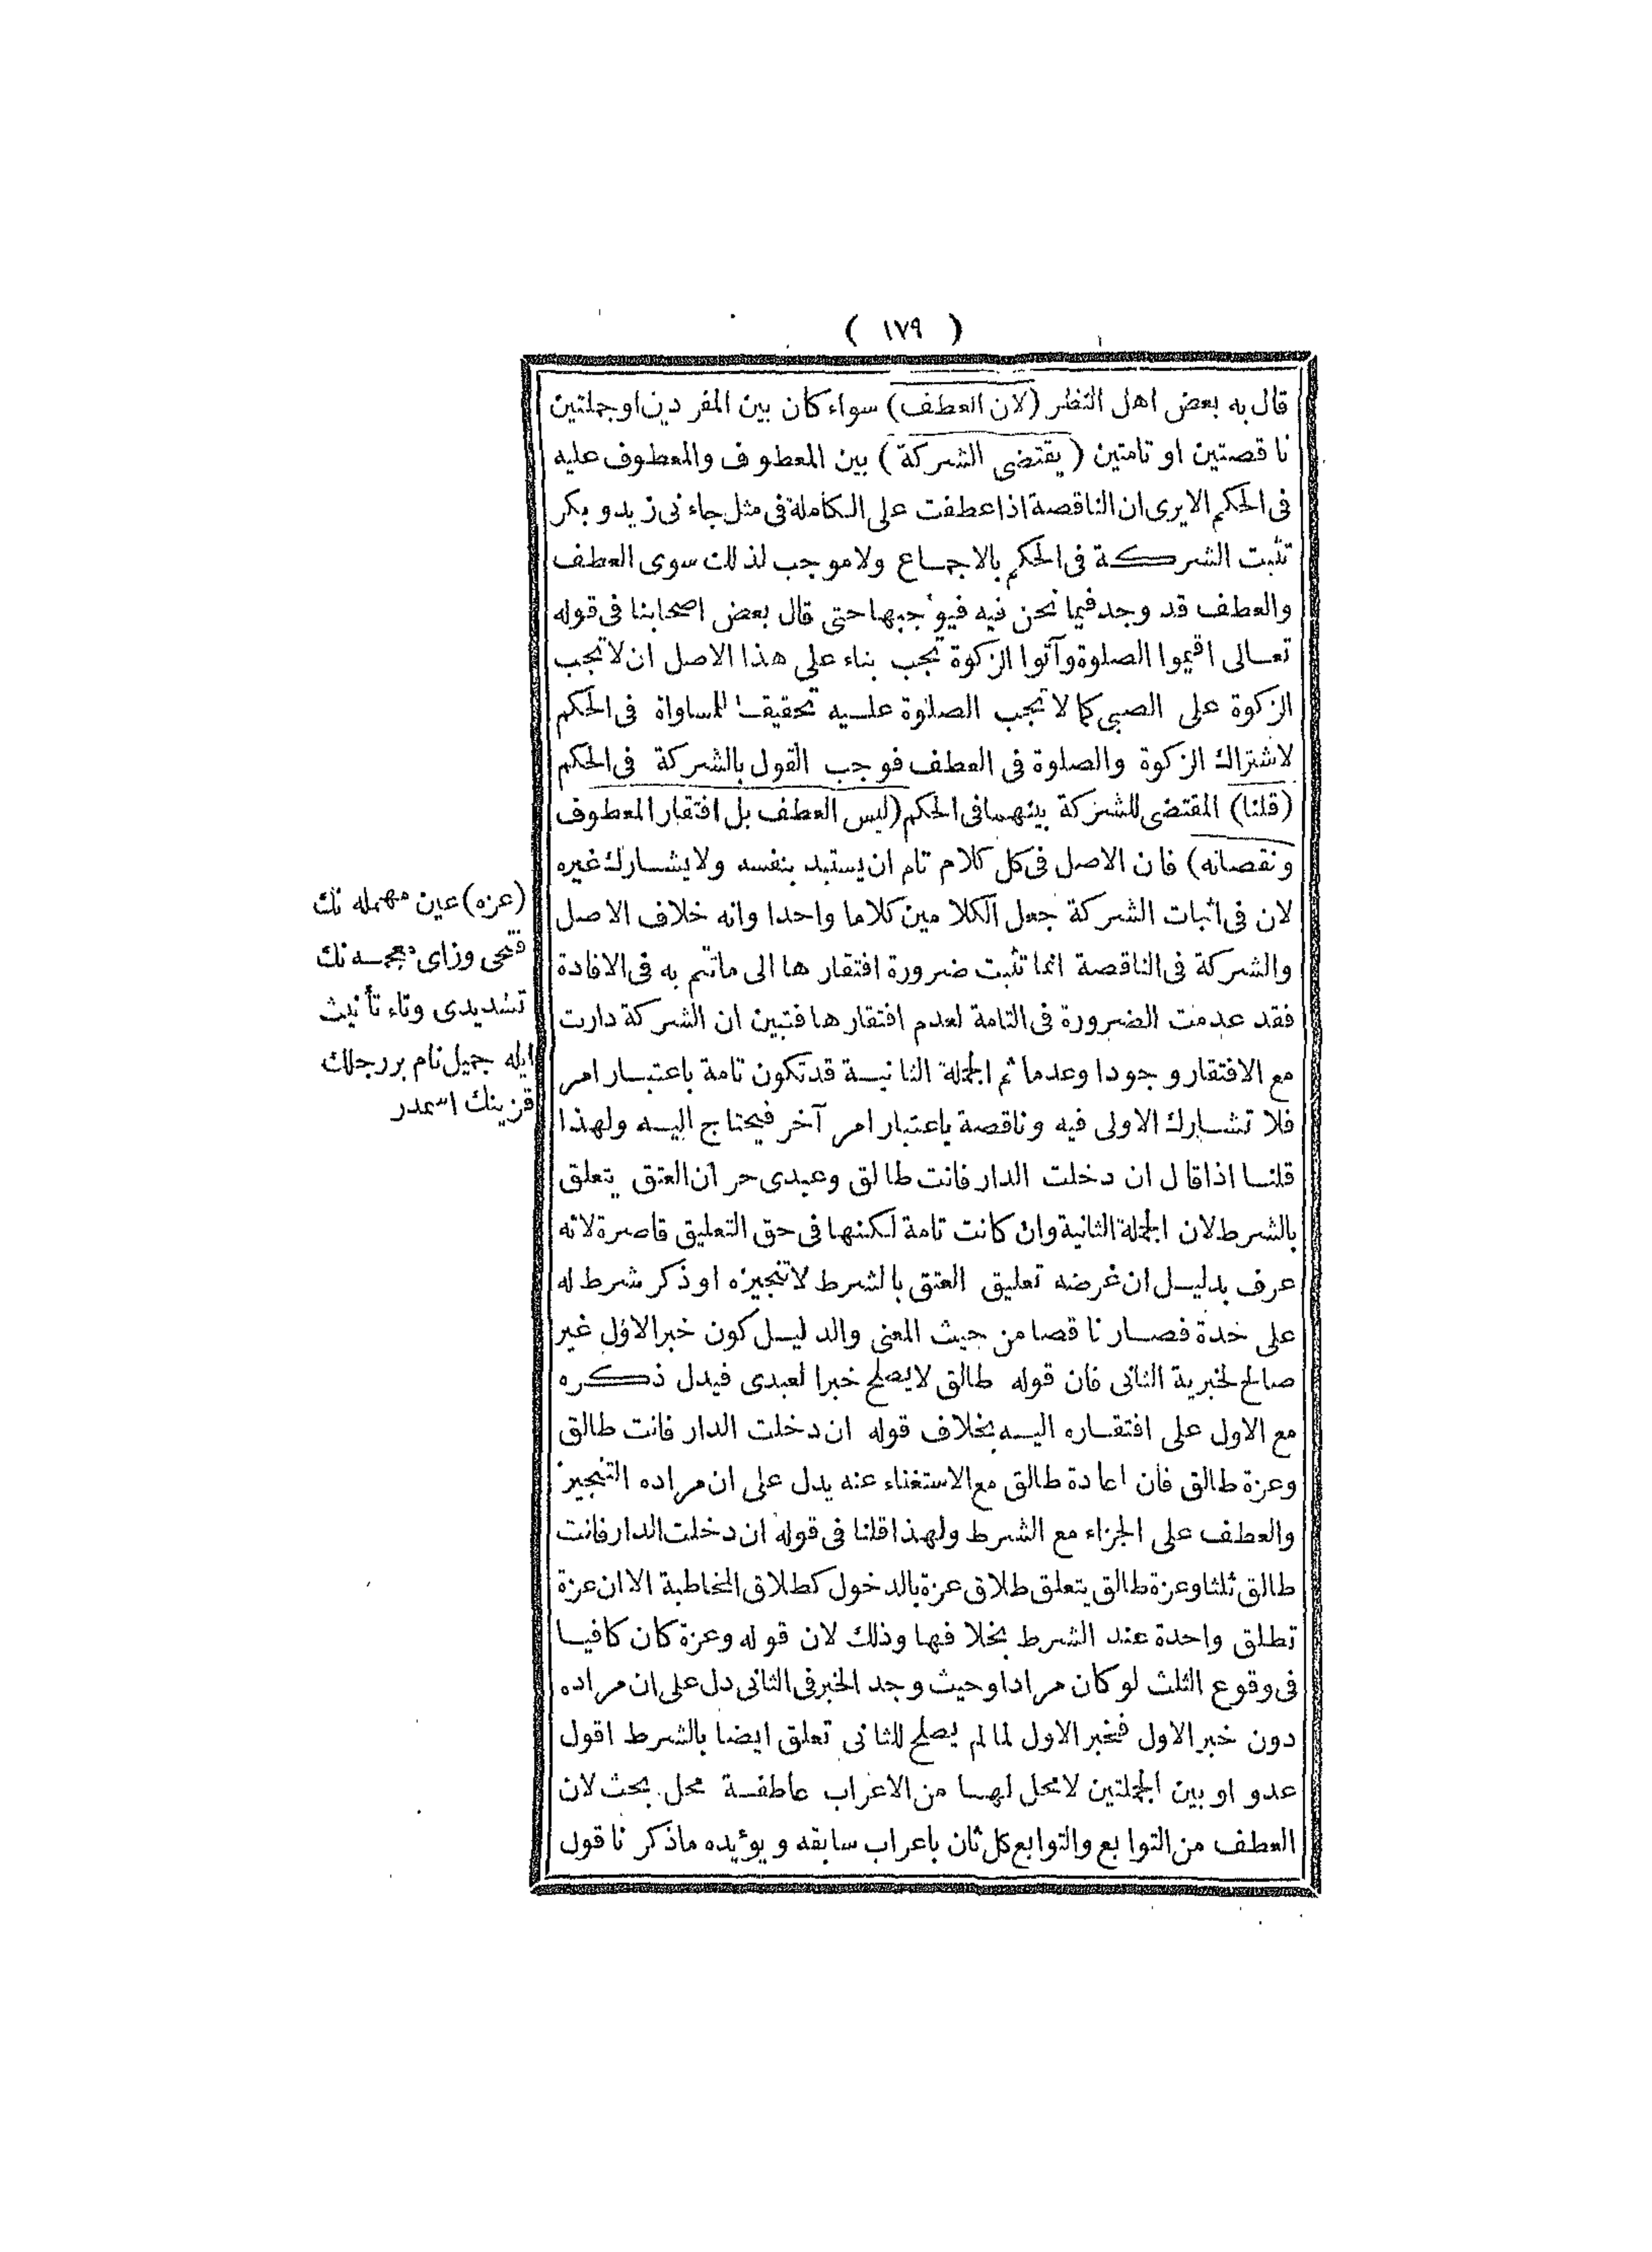 ( ١٧٩ )
قال به بعض اهل النظر (لان العطف) سواء كان بين المفردين او جملتين
ناقصتين او تامتين (يقتضى الشركة) بين المعطوف والمعطوف عليه
فى الحكم الايرى ان الناقصة اذا عطفت على الكاملة فى مثل جاءنى زيد وبكر
تثبت الشركة فى الحكم بالاجماع ولا موجب لذلك سوى العطف
والعطف قد وجد فيما نحن فيه فيوجبها حتى قال بعض اصحابنا فى قوله
تعالى اقيموا الصلوة وآتوا الزكوة تجب بناء على هذا الاصل ان لاتجب
الزكوة على الصبى كما لاتجب الصلوة عليه تحقيقا للمساواة فى الحكم
لاشتراك الزكوة والصلوة فى العطف فوجب القول بالشركة فى الحكم
(قلنا) المقتضى للشركة بينهما فى الحكم (ليس العطف بل افتقار المعطوف
ونقصانه) فان الاصل فى كل كلام تام ان يستبد بنفسه ولا يشارك غيره
لان فى اثبات الشركة جعل الكلامين كلاما واحدا وانه خلاف الاصل
والشركة فى الناقصة انما تثبت ضرورة افتقارها الى ماتتم به فى الافادة
فقد عدمت الضرورة فى التامة لعدم افتقارها فتبين ان الشركة دارت
مع الافتقار وجودا وعدما ثم الجملة الثانية قد تكون تامة باعتبار امر
فلا تشارك الاولى فيه وناقصة باعتبار امر آخر فيحتاج اليه ولهذا
قلنا اذا قال ان دخلت الدار فانت طالق وعبدى حر ان العتق يتعلق
بالشرط لان الجملة الثانية وان كانت تامة لكنها فى حق التعليق قاصرة لانه
عرف بدليل ان غرضه تعليق العتق بالشرط لا تنجيزه او ذكر شرط له
على حدة فصار ناقصا من حيث المعنى والدليل كون خبر الاول غير
صالح لخبرية الثانى فان قوله طالق لايصلح خبرا لعبدى فيدل ذكره
مع الاول على افتقاره اليه بخلاف قوله ان دخلت الدار فانت طالق
وعزة طالق فان اعادة طالق مع الاستغناء عنه يدل على ان مراده التنجيز
والعطف على الجزاء مع الشرط ولهذا قلنا فى قوله ان دخلت الدار فانت
طالق ثلثا وعزة طالق يتعلق طلاق عزة بالدخول كطلاق المخاطبة الا ان عزة
تطلق واحدة عند الشرط بخلافها وذلك لان قوله وعزة كان كافيا
فى وقوع الثلث لو كان مرادا وحيث وجد الخبر فى الثانى دل على ان مراده
دون خبر الاول فخبر الاول لما لم يصلح للثانى تعلق ايضا بالشرط اقول
عدو او بين الجملتين لامحل لهما من الاعراب عاطفة محل بحث لان
العطف من التوابع والتوابع كل ثان باعراب سابقه ويؤيده ماذكرنا قول
(عزه) عين مهمله نك
فتحى وزاى معجمه نك
تشديدى وتاء تأنيث
ايله جميل نام بر رجلك
قزينك اسمدر